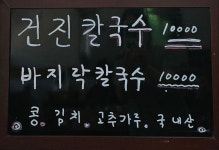 건진칼국수 10000
바지락칼국수 10000
콩. 김치. 고추가루. 국내산